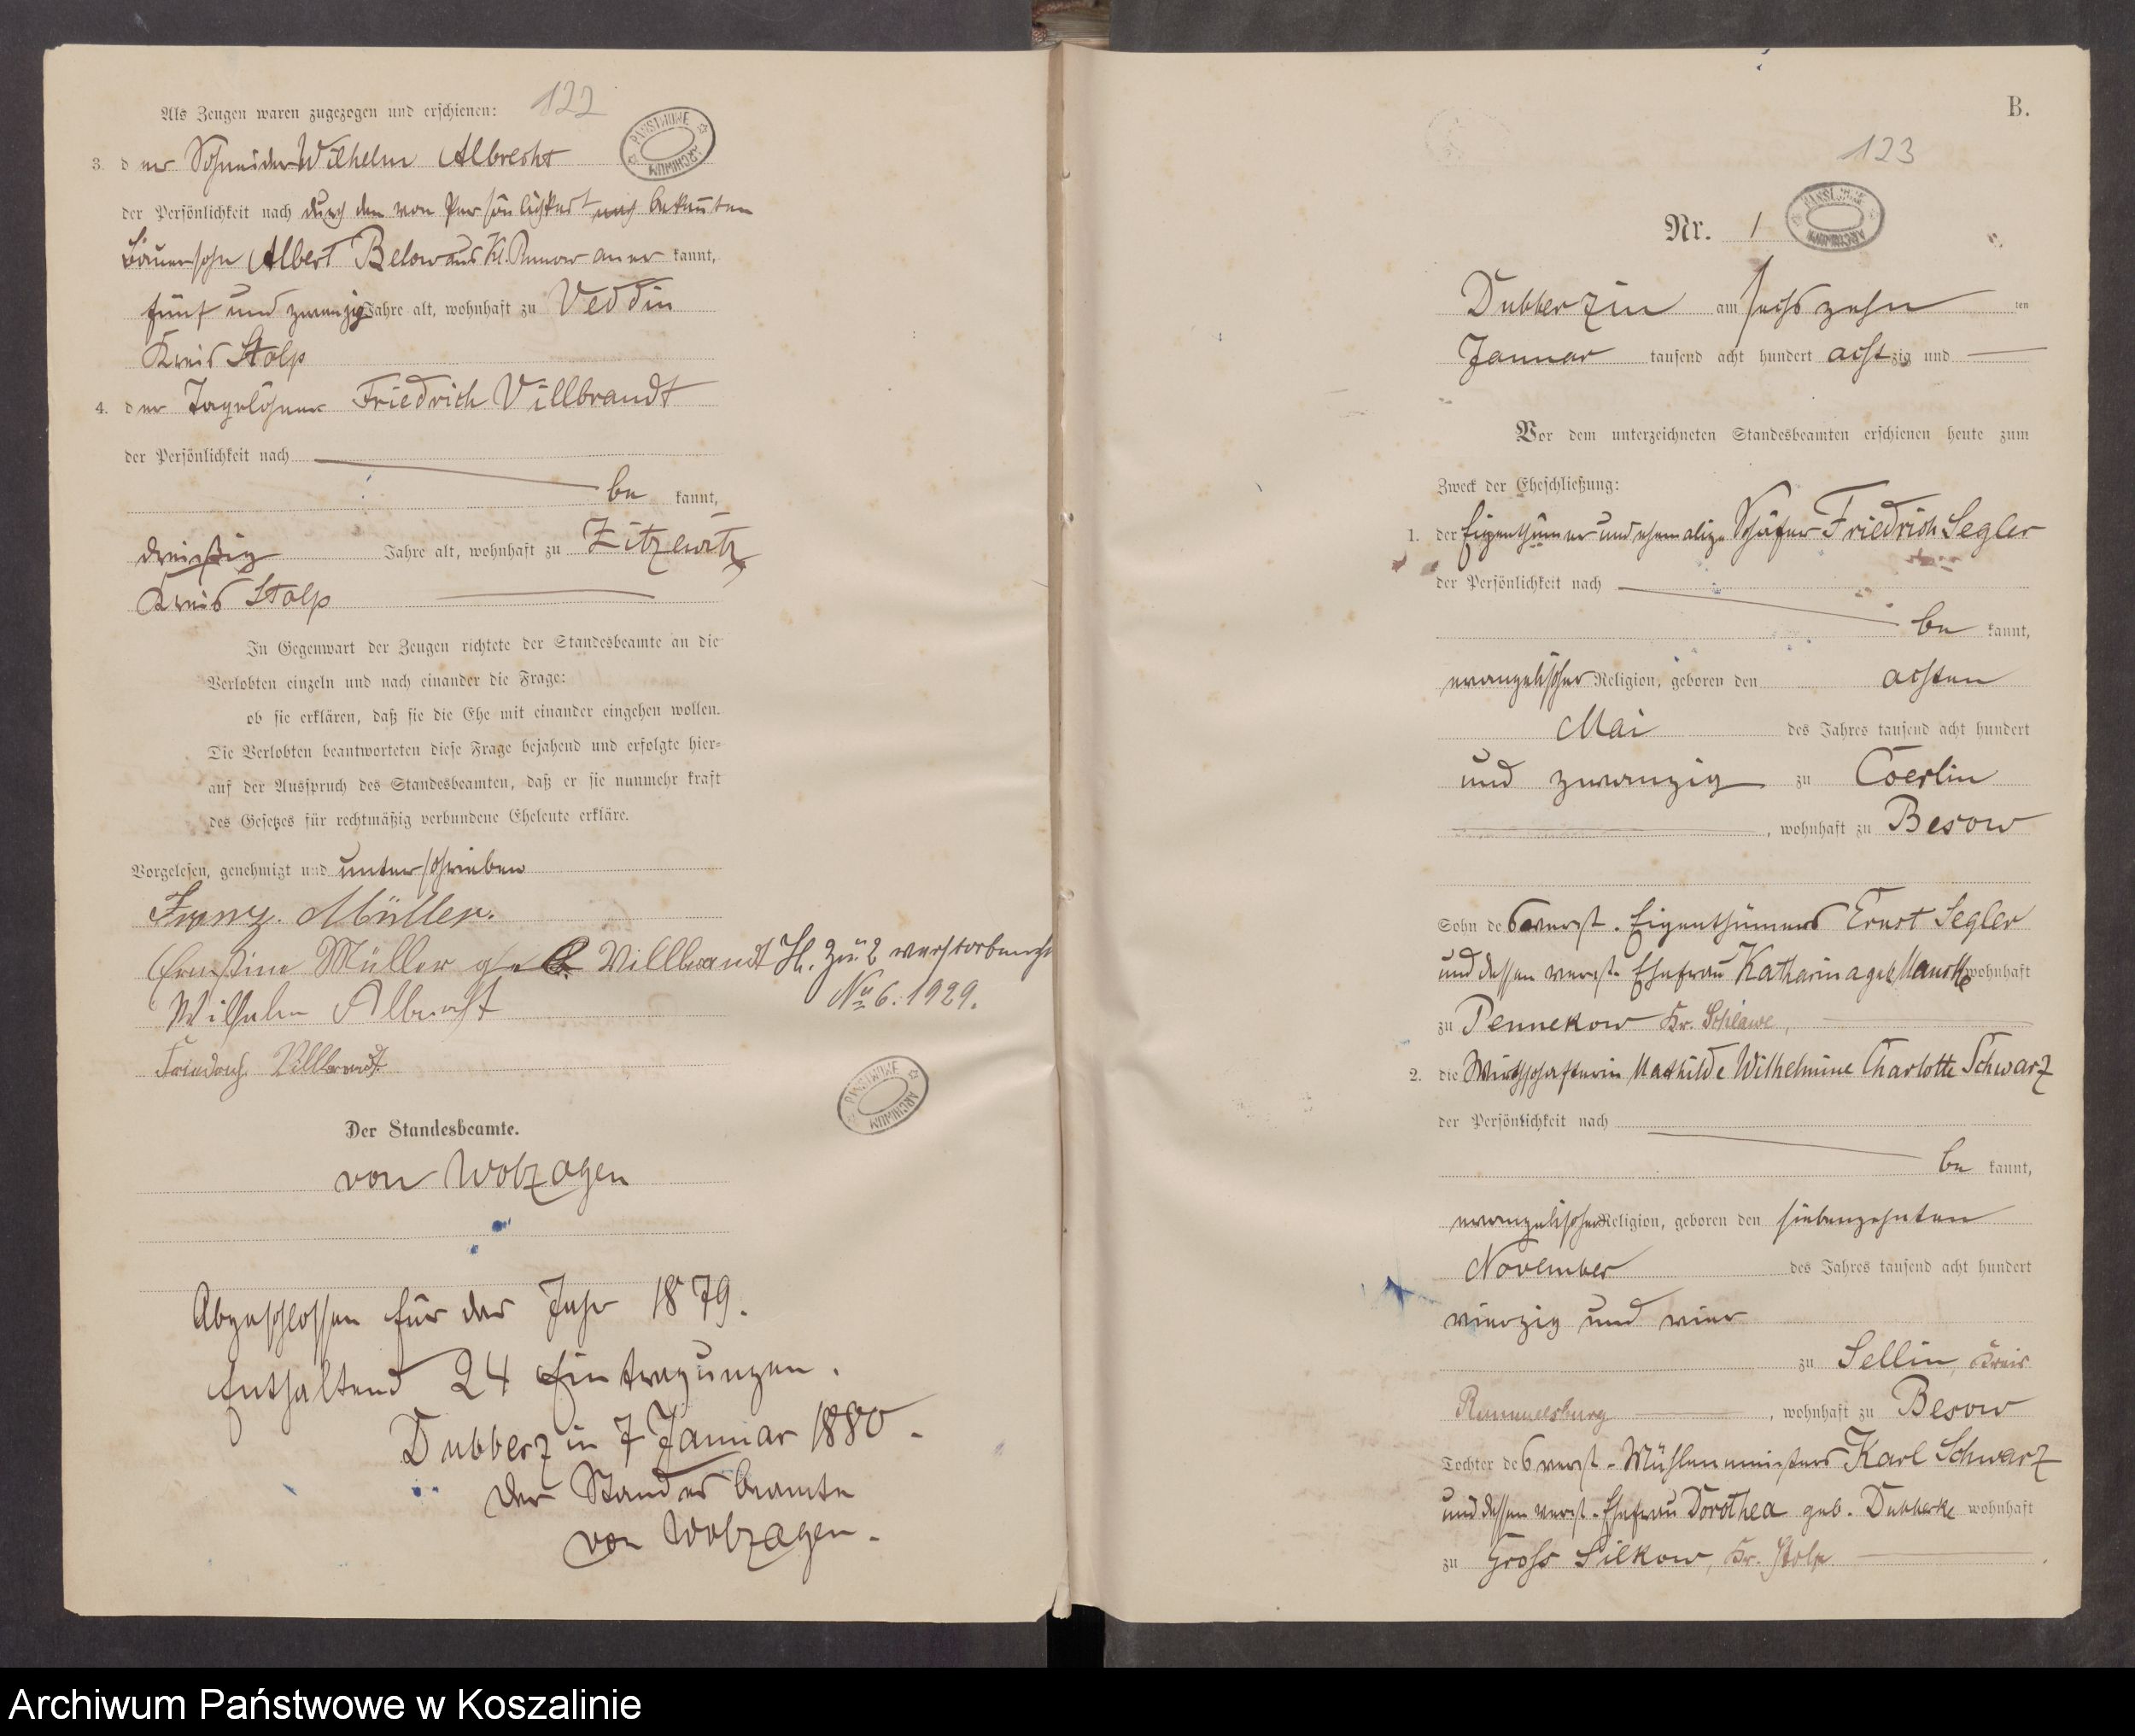 122
Als Zeugen waren zugezogen und erschienen:
PAŃSTWOWE ARCHIWUM
3. der Schneider Wilhelm Albrecht
der Persönlichkeit nach durch den von Persönlichkeit nach bekannten
Bauersohn Albert Below aus Kl. Runow aner kannt,
fünf und zwanzig Jahre alt, wohnhaft zu Veddin
Kreis Stolp
4. der Tagelöhner Friedrich Villbrandt
der Persönlichkeit nach
be kannt,
dreißig Jahre alt, wohnhaft zu Zitzewitz
Kreis Stolp
In Gegenwart der Zeugen richtete der Standesbeamte an die
Verlobten einzeln und nach einander die Frage:
ob sie erklären, daß sie die Ehe mit einander eingehen wollen.
Die Verlobten beantworteten diese Frage bejahend und erfolgte hier-
auf der Ausspruch des Standesbeamten, daß er sie nunmehr kraft
des Gesetzes für rechtmäßig verbundene Eheleute erkläre.
Vorgelesen, genehmigt und unterschrieben
Franz. Müller.
Ernstine Müller geb. Villbrandt H. zu 2 verstorben
Wilhelm Albrecht No 6. 1929.
Friedrich Villbrandt
PAŃSTWOWE ARCHIWUM
Der Standesbeamte.
von Wolzogen
Abgeschlossen für das Jahr 1879.
Enthaltend 24 Eintragungen.
Dubberzin 7 Januar 1880.
Der Standesbeamte
von Wolzogen.
B.
123
Nr. 1
PAŃSTWOWE ARCHIWUM
Dubberzin am sechszehn ten
Januar tausend acht hundert acht zig und
Vor dem unterzeichneten Standesbeamten erschienen heute zum
Zweck der Eheschließung:
1. der Eigenthümer und ehemalige Schäfer Friedrich Segler
der Persönlichkeit nach
be kannt,
evangelischer Religion, geboren den achten
Mai des Jahres tausend acht hundert
und zwanzig zu Coerlin
, wohnhaft zu Besow
Sohn des verst. Eigenthümers Ernst Segler
und dessen verst. Ehefrau Katharina geb. wohnhaft
zu Pennekow Kr. Schlawe,
2. die Wirthschafterin Mathilde Wilhelmine Charlotte Schwarz
der Persönlichkeit nach
be kannt,
evangelischer Religion, geboren den siebenzehnten
November des Jahres tausend acht hundert
vierzig und vier
zu Sellin, Kreis
Rummelsburg , wohnhaft zu Besow
Tochter des verst. Mühlenmeisters Karl Schwarz
und dessen verst. Ehefrau Dorothea geb. Dubberke wohnhaft
zu Gross Silkow, Kr. Stolp
Archiwum Państwowe w Koszalinie